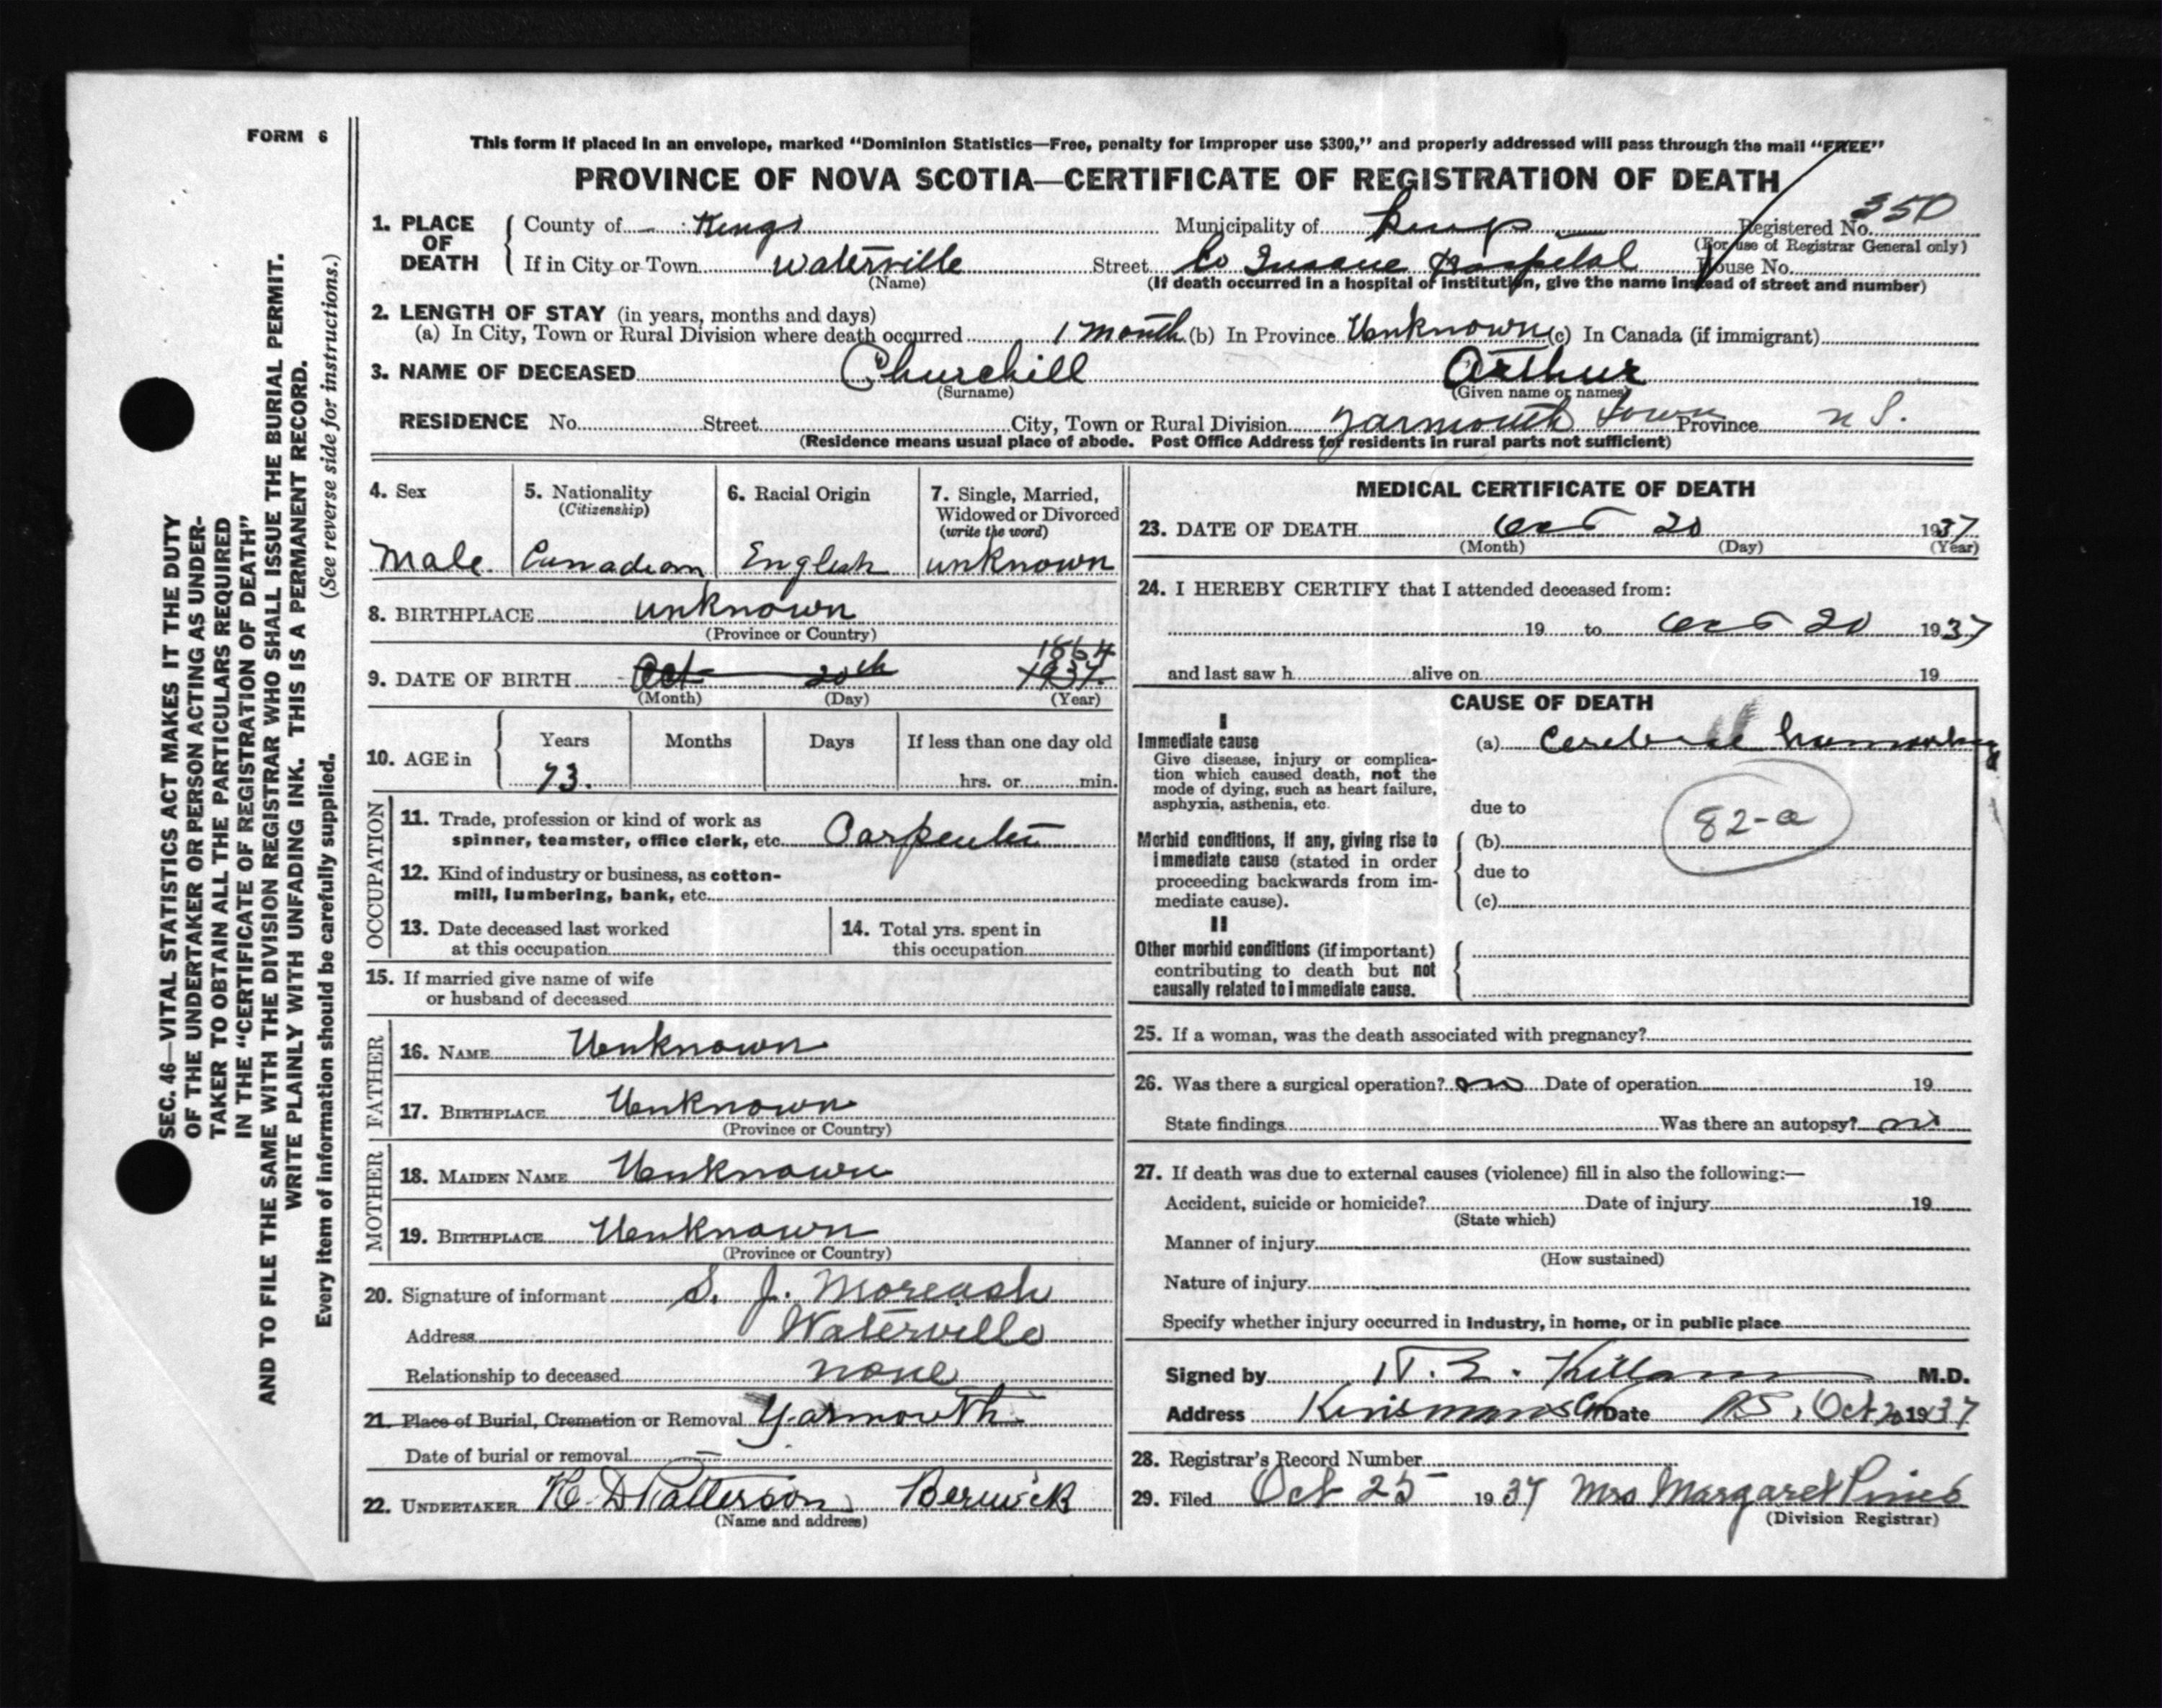 FORM 6
This form if placed in an envelope, marked “Dominion Statistics—Free, penalty for improper use $300,” and properly addressed will pass through the mail “FREE”
PROVINCE OF NOVA SCOTIA—CERTIFICATE OF REGISTRATION OF DEATH
1. PLACE OF DEATH
County of Kings Municipality of Kings Registered No. 350
(For use of Registrar General only)
If in City or Town Waterville Street Co Insane Hospital House No.
(Name) (If death occurred in a hospital or institution, give the name instead of street and number)
2. LENGTH OF STAY (in years, months and days)
(a) In City, Town or Rural Division where death occurred 1 month (b) In Province Unknown (c) In Canada (if immigrant)
3. NAME OF DECEASED Churchill Arthur
(Surname) (Given name or names)
RESIDENCE No. Street City, Town or Rural Division Yarmouth Town Province N S.
(Residence means usual place of abode. Post Office Address for residents in rural parts not sufficient)
4. Sex
Male
5. Nationality
(Citizenship)
Canadian
6. Racial Origin
English
7. Single, Married,
Widowed or Divorced
(write the word)
unknown
8. BIRTHPLACE unknown
(Province or Country)
1864
9. DATE OF BIRTH Oct 20th 1937
(Month) (Day) (Year)
10. AGE in
Years Months Days If less than one day old
73. hrs. or min.
OCCUPATION
11. Trade, profession or kind of work as
spinner, teamster, office clerk, etc. Carpenter
12. Kind of industry or business, as cotton-
mill, lumbering, bank, etc.
13. Date deceased last worked
at this occupation
14. Total yrs. spent in
this occupation
15. If married give name of wife
or husband of deceased
FATHER
16. NAME Unknown
17. BIRTHPLACE Unknown
(Province or Country)
MOTHER
18. MAIDEN NAME Unknown
19. BIRTHPLACE Unknown
(Province or Country)
20. Signature of informant S. J. Moreash
Address Waterville
Relationship to deceased none
21. Place of Burial, Cremation or Removal Yarmouth
Date of burial or removal
22. UNDERTAKER H. D Patterson Berwick
(Name and address)
MEDICAL CERTIFICATE OF DEATH
23. DATE OF DEATH Oct 20 1937
(Month) (Day) (Year)
24. I HEREBY CERTIFY that I attended deceased from:
19 to Oct 20 1937
and last saw h alive on 19
CAUSE OF DEATH
I
Immediate cause
Give disease, injury or complica-
tion which caused death, not the
mode of dying, such as heart failure,
asphyxia, asthenia, etc.
(a) Cerebral
due to
82-a
Morbid conditions, if any, giving rise to
immediate cause (stated in order
proceeding backwards from im-
mediate cause).
(b)
due to
(c)
II
Other morbid conditions (if important)
contributing to death but not
causally related to immediate cause.
25. If a woman, was the death associated with pregnancy?
26. Was there a surgical operation? no Date of operation 19
State findings Was there an autopsy? no
27. If death was due to external causes (violence) fill in also the following:—
Accident, suicide or homicide? Date of injury 19
(State which)
Manner of injury
(How sustained)
Nature of injury
Specify whether injury occurred in industry, in home, or in public place
Signed by Killam M.D.
Address Kinsmans Date Oct 20 1937
28. Registrar's Record Number
29. Filed Oct 25 1937 Mrs Margaret
(Division Registrar)
SEC. 46—VITAL STATISTICS ACT MAKES IT THE DUTY
OF THE UNDERTAKER OR PERSON ACTING AS UNDER-
TAKER TO OBTAIN ALL THE PARTICULARS REQUIRED
IN THE “CERTIFICATE OF REGISTRATION OF DEATH”
AND TO FILE THE SAME WITH THE DIVISION REGISTRAR WHO SHALL ISSUE THE BURIAL PERMIT.
WRITE PLAINLY WITH UNFADING INK. THIS IS A PERMANENT RECORD.
Every item of information should be carefully supplied. (See reverse side for instructions.)